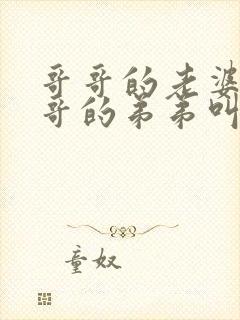 哥哥的老婆
哥的弟弟叫
童奴